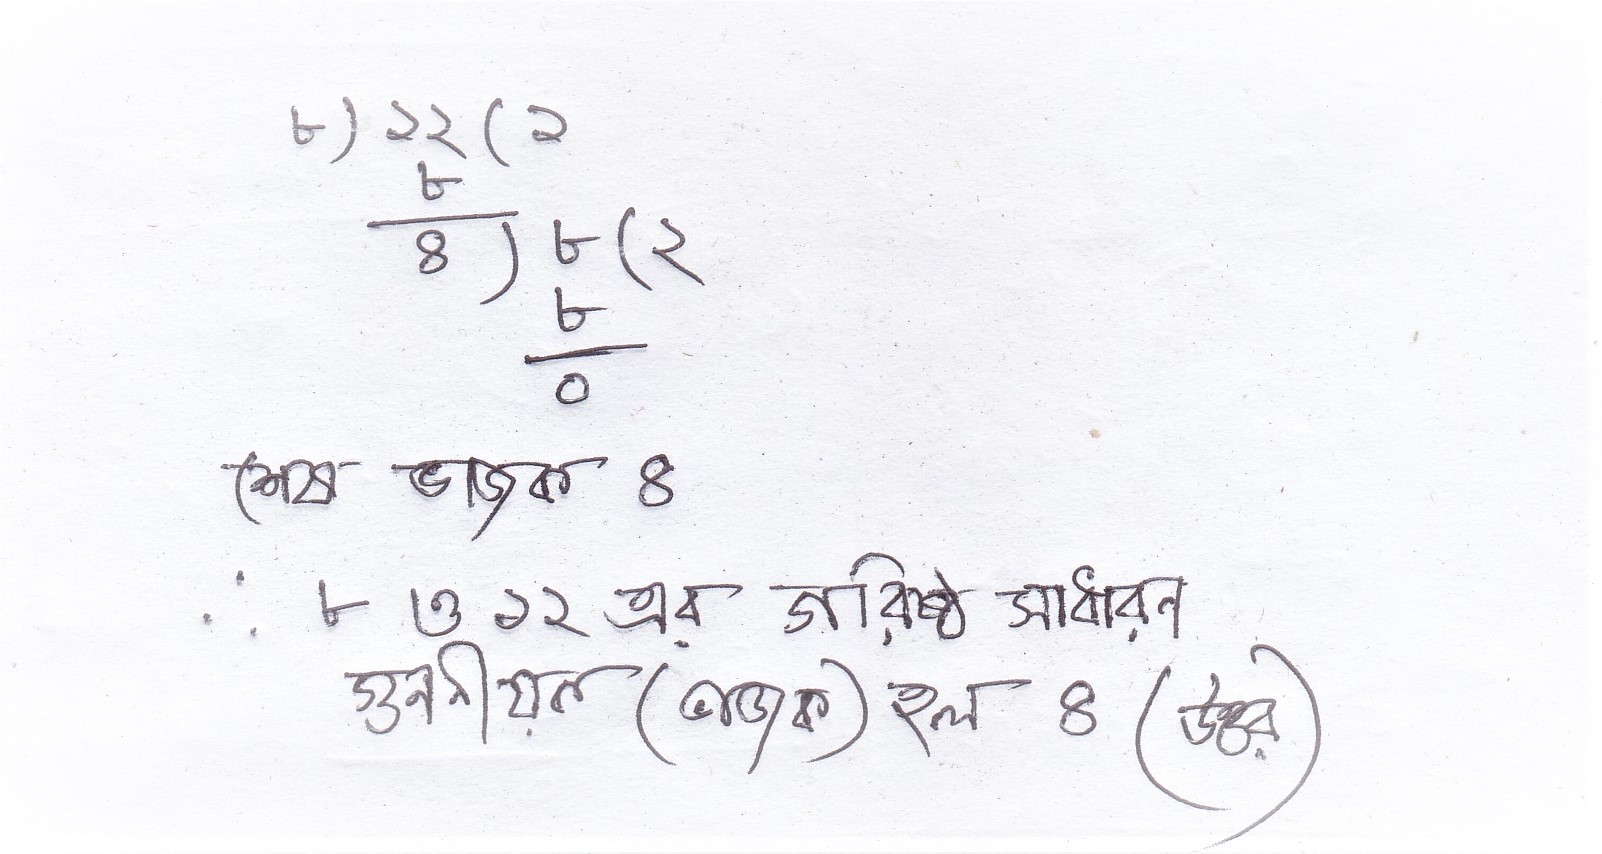 ৮) ১২ ( ১
৮
৪ ) ৮ ( ২
৮
০
শেষ ভাজক ৪
∴ ৮ ও ১২ এর গরিষ্ঠ সাধারন
গুননীয়ক (ভাজক) হল ৪ (উত্তর)